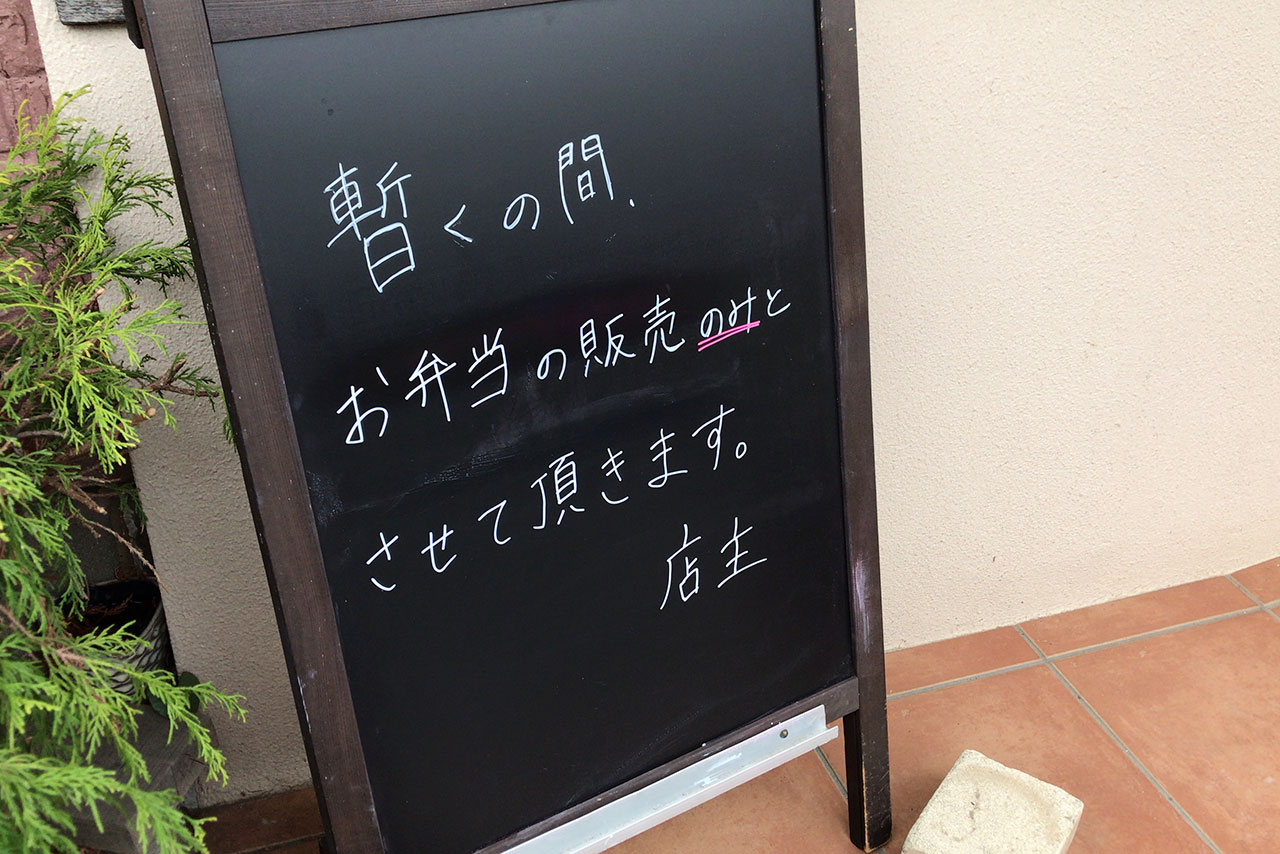 暫くの間、
お弁当の販売のみと
させて頂きます。
店主